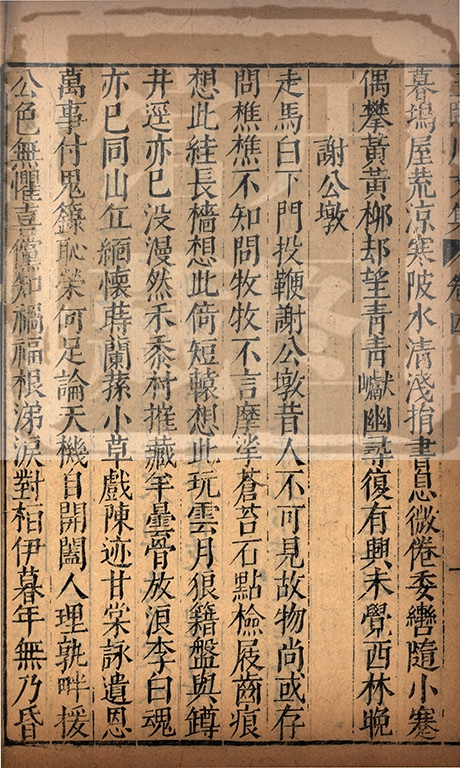 暮塢屋荒凉寒陂水清淺捐書息微倦委轡隨小蹇
偶攀黃黃柳却望青青巘幽尋復有興未覺西林晚
謝公墩
走馬白下門投鞭謝公墩昔人不可見故物尚或存
問樵樵不知問牧牧不言摩挲蒼苔石點檢屐齒痕
想此絓長檣想此倚短轅想此玩雲月狼籍盤與鐏
井逕亦已没漫然禾黍村摧藏羊曇骨放浪李白魂
亦已同山丘緬懷蒔蘭蓀小草戲陳迹甘棠詠遺恩
萬事付鬼籙恥榮何足論天機自開闔人理孰畔援
公色無懼喜儻知禍福根涕淚對桓伊暮年無乃昏